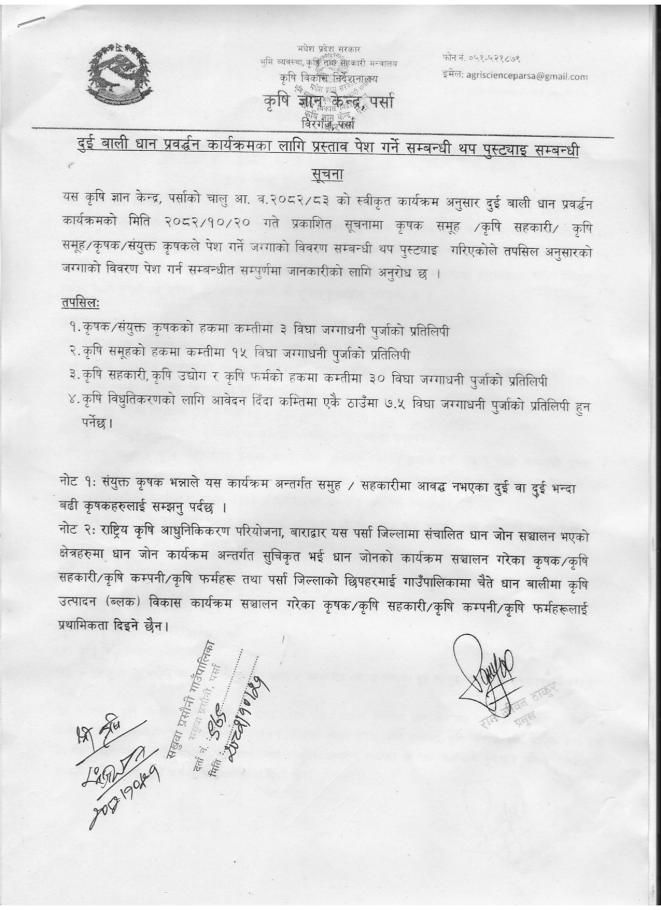 मधेश प्रदेश सरकार
भूमि व्यवस्था, कृषि तथा सहकारी मन्त्रालय
कृषि विकास निर्देशनालय
कृषि ज्ञान केन्द्र, पर्सा
विरगंज, पर्सा
फोन नं. ०५१-५२१८७१
इमेल: agrisciencepersa@gmail.com
दुई बाली धान प्रवर्द्धन कार्यक्रमका लागि प्रस्ताव पेश गर्ने सम्बन्धी थप पुस्ट्याइ सम्बन्धी
सूचना
यस कृषि ज्ञान केन्द्र, पर्साको चालु आ. व.२०८२/८३ को स्वीकृत कार्यक्रम अनुसार दुई बाली धान प्रवर्द्धन
कार्यक्रमको मिति २०८२/१०/२० गते प्रकाशित सूचनामा कृषक समूह /कृषि सहकारी/ कृषि
समूह/कृषक/संयुक्त कृषकले पेश गर्ने जग्गाको विवरण सम्बन्धी थप पुस्ट्याइ गरिएकोले तपसिल अनुसारको
जग्गाको विवरण पेश गर्न सम्बन्धीत सम्पुर्णमा जानकारीको लागि अनुरोध छ ।
तपसिल:
१.कृषक/संयुक्त कृषकको हकमा कम्तीमा ३ विघा जग्गाधनी पुर्जाको प्रतिलिपी
२.कृषि समूहको हकमा कम्तीमा १५ विघा जग्गाधनी पुर्जाको प्रतिलिपी
३.कृषि सहकारी,कृषि उद्योग र कृषि फर्मको हकमा कम्तीमा ३० विघा जग्गाधनी पुर्जाको प्रतिलिपी
४.कृषि विधुतिकरणको लागि आवेदन दिँदा कम्तिमा एकै ठाउँमा ७.५ विघा जग्गाधनी पुर्जाको प्रतिलिपी हुन
पर्नेछ।
नोट १: संयुक्त कृषक भन्नाले यस कार्यक्रम अन्तर्गत समुह / सहकारीमा आवद्ध नभएका दुई वा दुई भन्दा
बढी कृषकहरुलाई सम्झनु पर्दछ ।
नोट २: राष्ट्रिय कृषि आधुनिकिकरण परियोजना, बाराद्वार यस पर्सा जिल्लामा संचालित धान जोन सञ्चालन भएको
क्षेत्रहरुमा धान जोन कार्यक्रम अन्तर्गत सुचिकृत भई धान जोनको कार्यक्रम सञ्चालन गरेका कृषक/कृषि
सहकारी/कृषि कम्पनी/कृषि फर्महरू तथा पर्सा जिल्लाको छिपहरमाई गाउँपालिकामा चैते धान बालीमा कृषि
उत्पादन (ब्लक) विकास कार्यक्रम सञ्चालन गरेका कृषक/कृषि सहकारी/कृषि कम्पनी/कृषि फर्महरूलाई
प्रथामिकता दिइने छैन।
सखुवा प्रसौनी गाउँपालिका
सखुवा प्रसौनी, पर्सा
दर्ता नं.
मिति :
ठाकुर
प्रमुख